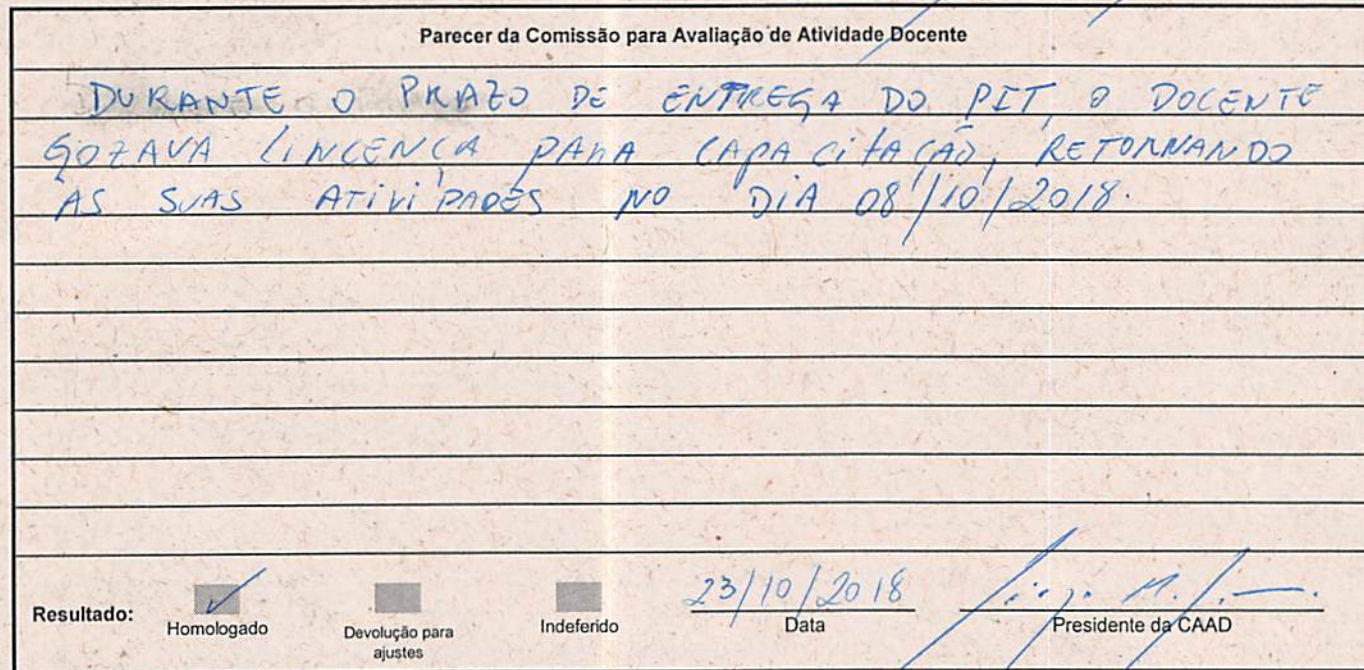 Parecer da Comissão para Avaliação de Atividade Docente
DURANTE O PRAZO DE ENTREGA DO PIT, O DOCENTE
GOZAVA LINCENÇA PARA CAPACITAÇÃO, RETORNANDO
ÀS SUAS ATIVIDADES NO DIA 08/10/2018.
Resultado: Homologado Devolução para ajustes Indeferido 23/10/2018 Data Presidente da CAAD